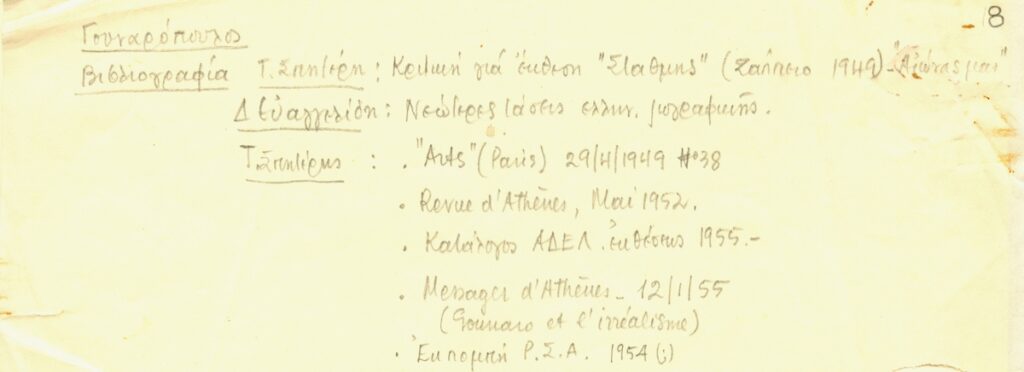 8
Γουναρόπουλος
Βιβλιογραφία Τ. Σπητέρη : Κριτική γιά έκθεση "Στάθμης" (Ζάππειο 1949) - "Αιώνας μας"
Δ Ευαγγελίδη : Νεώτερες τάσεις ελλην. ζωγραφικής.
Τ. Σπητέρης : . "Arts" (Paris) 29/4/1949 No 38
. Revue d'Athènes, Mai 1952.
. Κατάλογος ΑΔΕΛ. εκθέσεης 1955.-
. Messager d'Athènes - 12/1/55
(Gounaro et l'irréalisme)
. Εκπομπή Ρ.Σ.Α. 1954 (;)